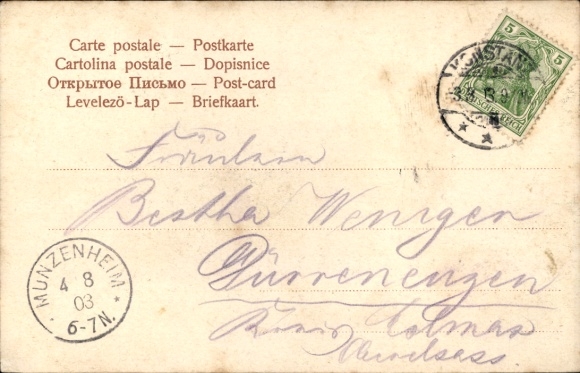 Carte postale — Postkarte
Cartolina postale — Dopisnice
Открытое Письмо — Post-card
Levelező-Lap — Briefkaart.
5 5
KONSTANZ
DEUTSCHES REICH
Fräulein
Bertha Wenigen
Dürrenenzen
Kreis Colmar
Oberelsass
MUNZENHEIM
4 8
03
6-7N.